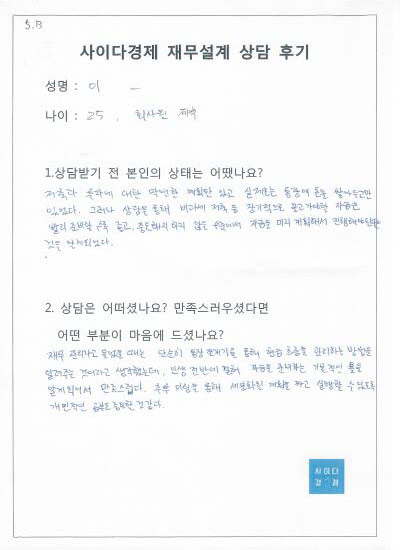 5.13
사이다경제 재무설계 상담 후기
성명 : 이
나이 : 25 , 회사원
1.상담받기 전 본인의 상태는 어땠나요?
저축과 투자에 대한 막연한 계획만 있고 실제로는 통장에 돈을 쌓아두고만
있었다. 그러나 상담을 통해 비과세 저축 등 장기적으로 끌고가야할 자금은
빨리 준비할수록 좋고, 자금을 미리 계획해서 진행해야
것을 느끼었다.
2. 상담은 어떠셨나요? 만족스러우셨다면
어떤 부분이 마음에 드셨나요?
재무 관리라고 들었을 때는 단순히 통장 쪼개기를 통해 현금 흐름을 관리하는 방법을
알려주는 것이라고 생각했는데, 인생 전반에 걸쳐 자금을 준비하는 기본적인 틀을
알게되어서 만족스럽다. 추후 미팅을 통해 세분화된 계획을 짜고 실행할 수 있도록
개인적인 공부도 필요한 것 같다.
사이다
경제